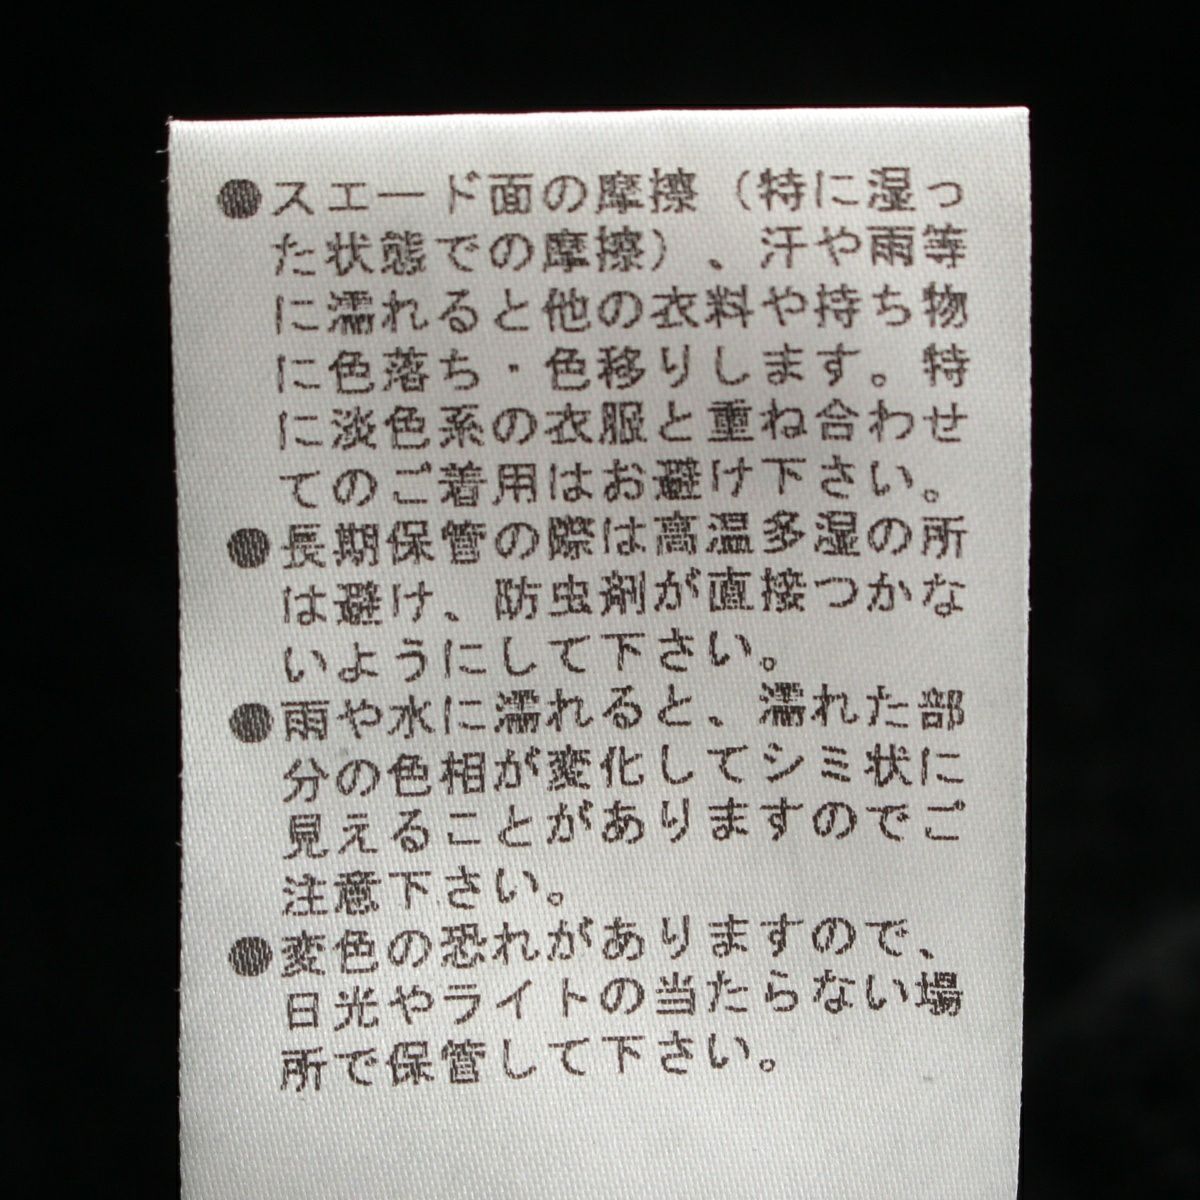 ●スエード面の摩擦（特に湿っ
た状態での摩擦）、汗や雨等
に濡れると他の衣料や持ち物
に色落ち・色移りします。特
に淡色系の衣服と重ね合わせ
てのご着用はお避け下さい。
●長期保管の際は高温多湿の所
は避け、防虫剤が直接つかな
いようにして下さい。
●雨や水に濡れると、濡れた部
分の色相が変化してシミ状に
見えることがありますのでご
注意下さい。
●変色の恐れがありますので、
日光やライトの当たらない場
所で保管して下さい。